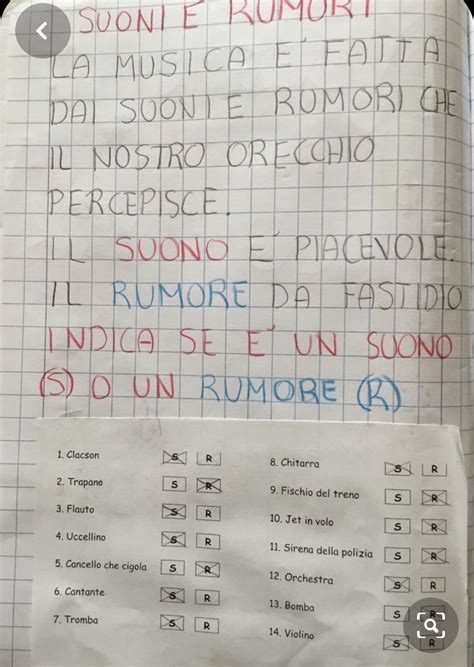 SUONI E RUMORI
LA MUSICA E' FATTA
DAI SUONI E RUMORI CHE
IL NOSTRO ORECCHIO
PERCEPISCE.
IL SUONO E' PIACEVOLE.
IL RUMORE DA FASTIDIO
INDICA SE E' UN SUONO
(S) O UN RUMORE (R)
1. Clacson S R
2. Trapano S R
3. Flauto S R
4. Uccellino S R
5. Cancello che cigola S R
6. Cantante S R
7. Tromba S R
8. Chitarra S R
9. Fischio del treno S R
10. Jet in volo S R
11. Sirena della polizia S R
12. Orchestra S R
13. Bomba S R
14. Violino S R